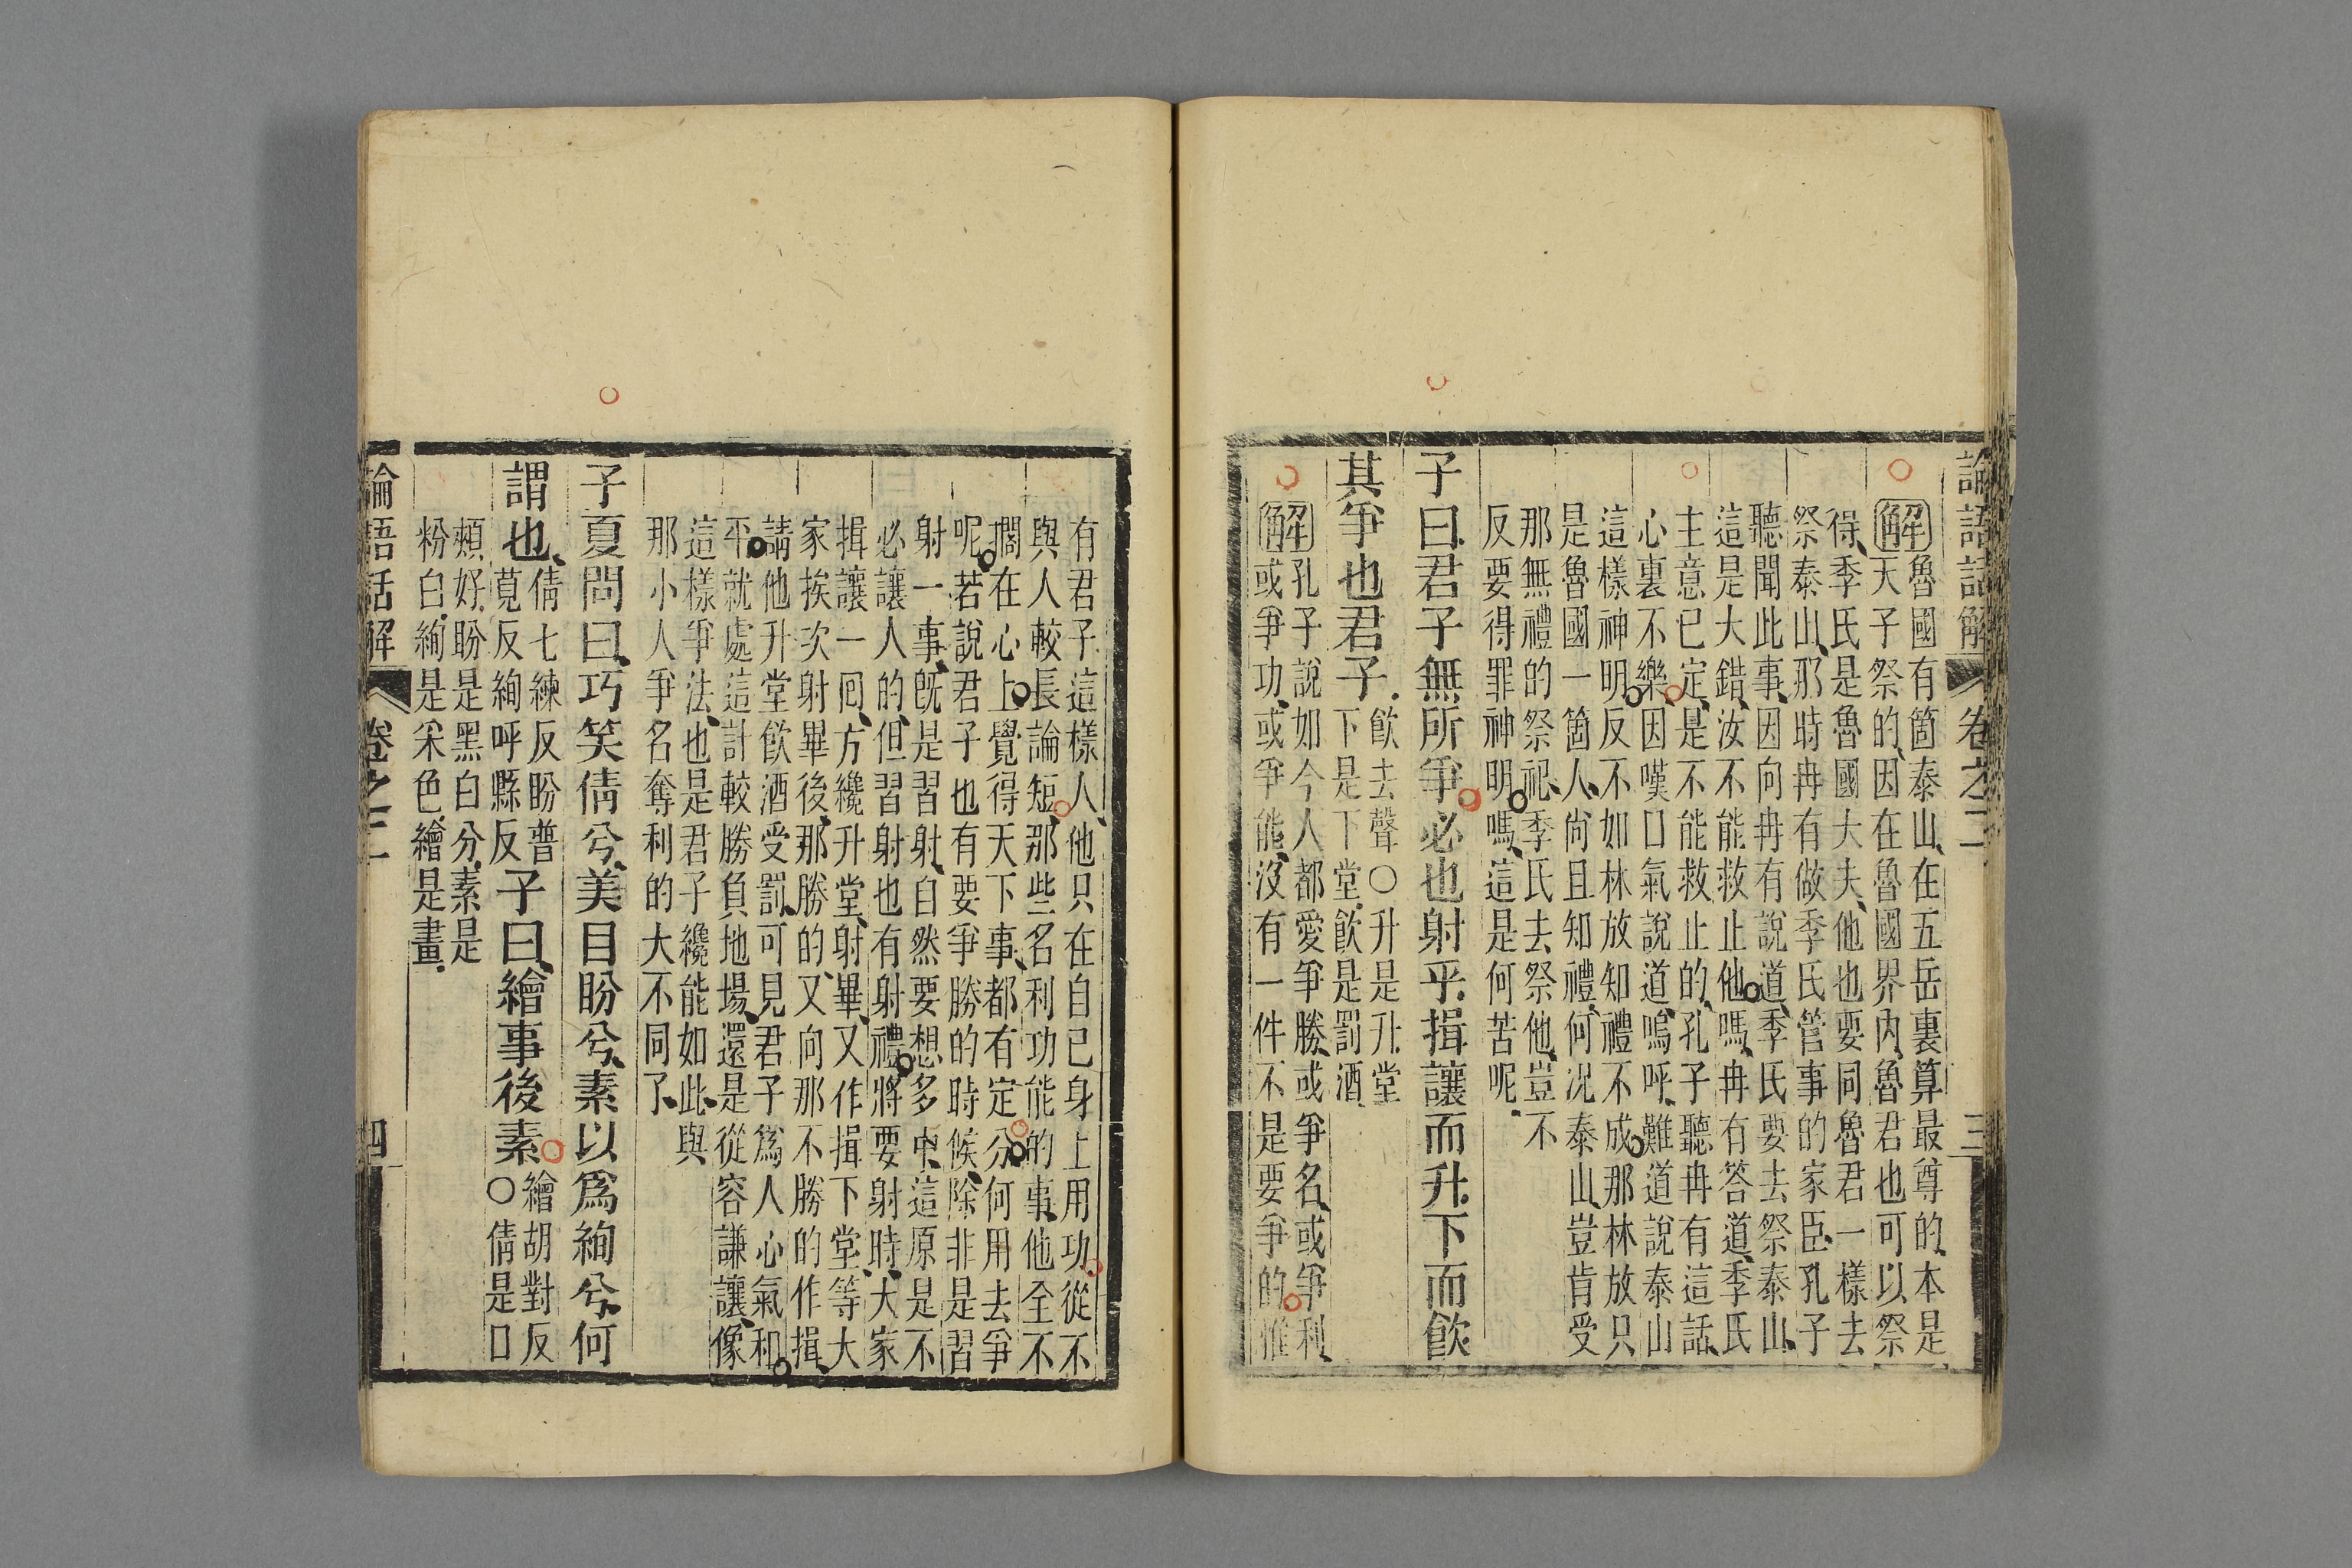 論語話解 卷之二 三
解 魯國有箇泰山、在五岳裏算最尊的、本是
天子祭的、因在魯國界內、魯君也可以祭
得、季氏是魯國大夫、他也要同魯君一樣去
祭泰山、那時冉有做季氏管事的家臣、孔子
聽聞此事、因向冉有說道、季氏要去祭泰山、
這是大錯、汝不能救止他嗎、冉有答道、季氏
主意已定、是不能救止的、孔子聽冉有這話、
心裏不樂、因嘆口氣說道、嗚呼、難道說泰山
這樣神明、反不如林放知禮不成、那林放只
是魯國一箇人、尙且知禮、何况泰山、豈肯受
那無禮的祭祀、季氏去祭他、豈不
反要得罪神明嗎、這是何苦呢、
子曰、君子無所爭、必也射乎、揖讓而升、下而飮、
其爭也君子、飮去聲○升是升堂
下是下堂、飮是罰酒、
解 孔子說如今人都愛爭勝、或爭名、或爭利、
或爭功、或爭能、沒有一件不是要爭的、惟
有君子這樣人、他只在自己身上用功、從不
與人較長論短、那些名利功能的事、他全不
擱在心上、覺得天下事、都有定分、何用去爭
呢、若說君子也有要爭勝的時候、除非是習
射一事、旣是習射、自然要想多中、這原是不
必讓人的、但習射也有射禮、將要射時、大家
揖讓一囘、方纔升堂、射畢、又作揖下堂、等大
家挨次射畢後、那勝的、又向那不勝的作揖、
請他升堂飮酒受罰、可見君子爲人、心氣和
平、就處這計較勝負地場、還是從容謙讓、像
這樣爭法、也是君子纔能如此、與
那小人爭名奪利的大不同了、
子夏問曰、巧笑倩兮、美目盼兮、素以爲絢兮、何
謂也、倩七練反盼普
莧反絢呼縣反 子曰、繪事後素、繪胡對反
○倩是口
頰好、盼是黑白分、素是
粉白、絢是采色、繪是畫、
論語話解 卷之二 四